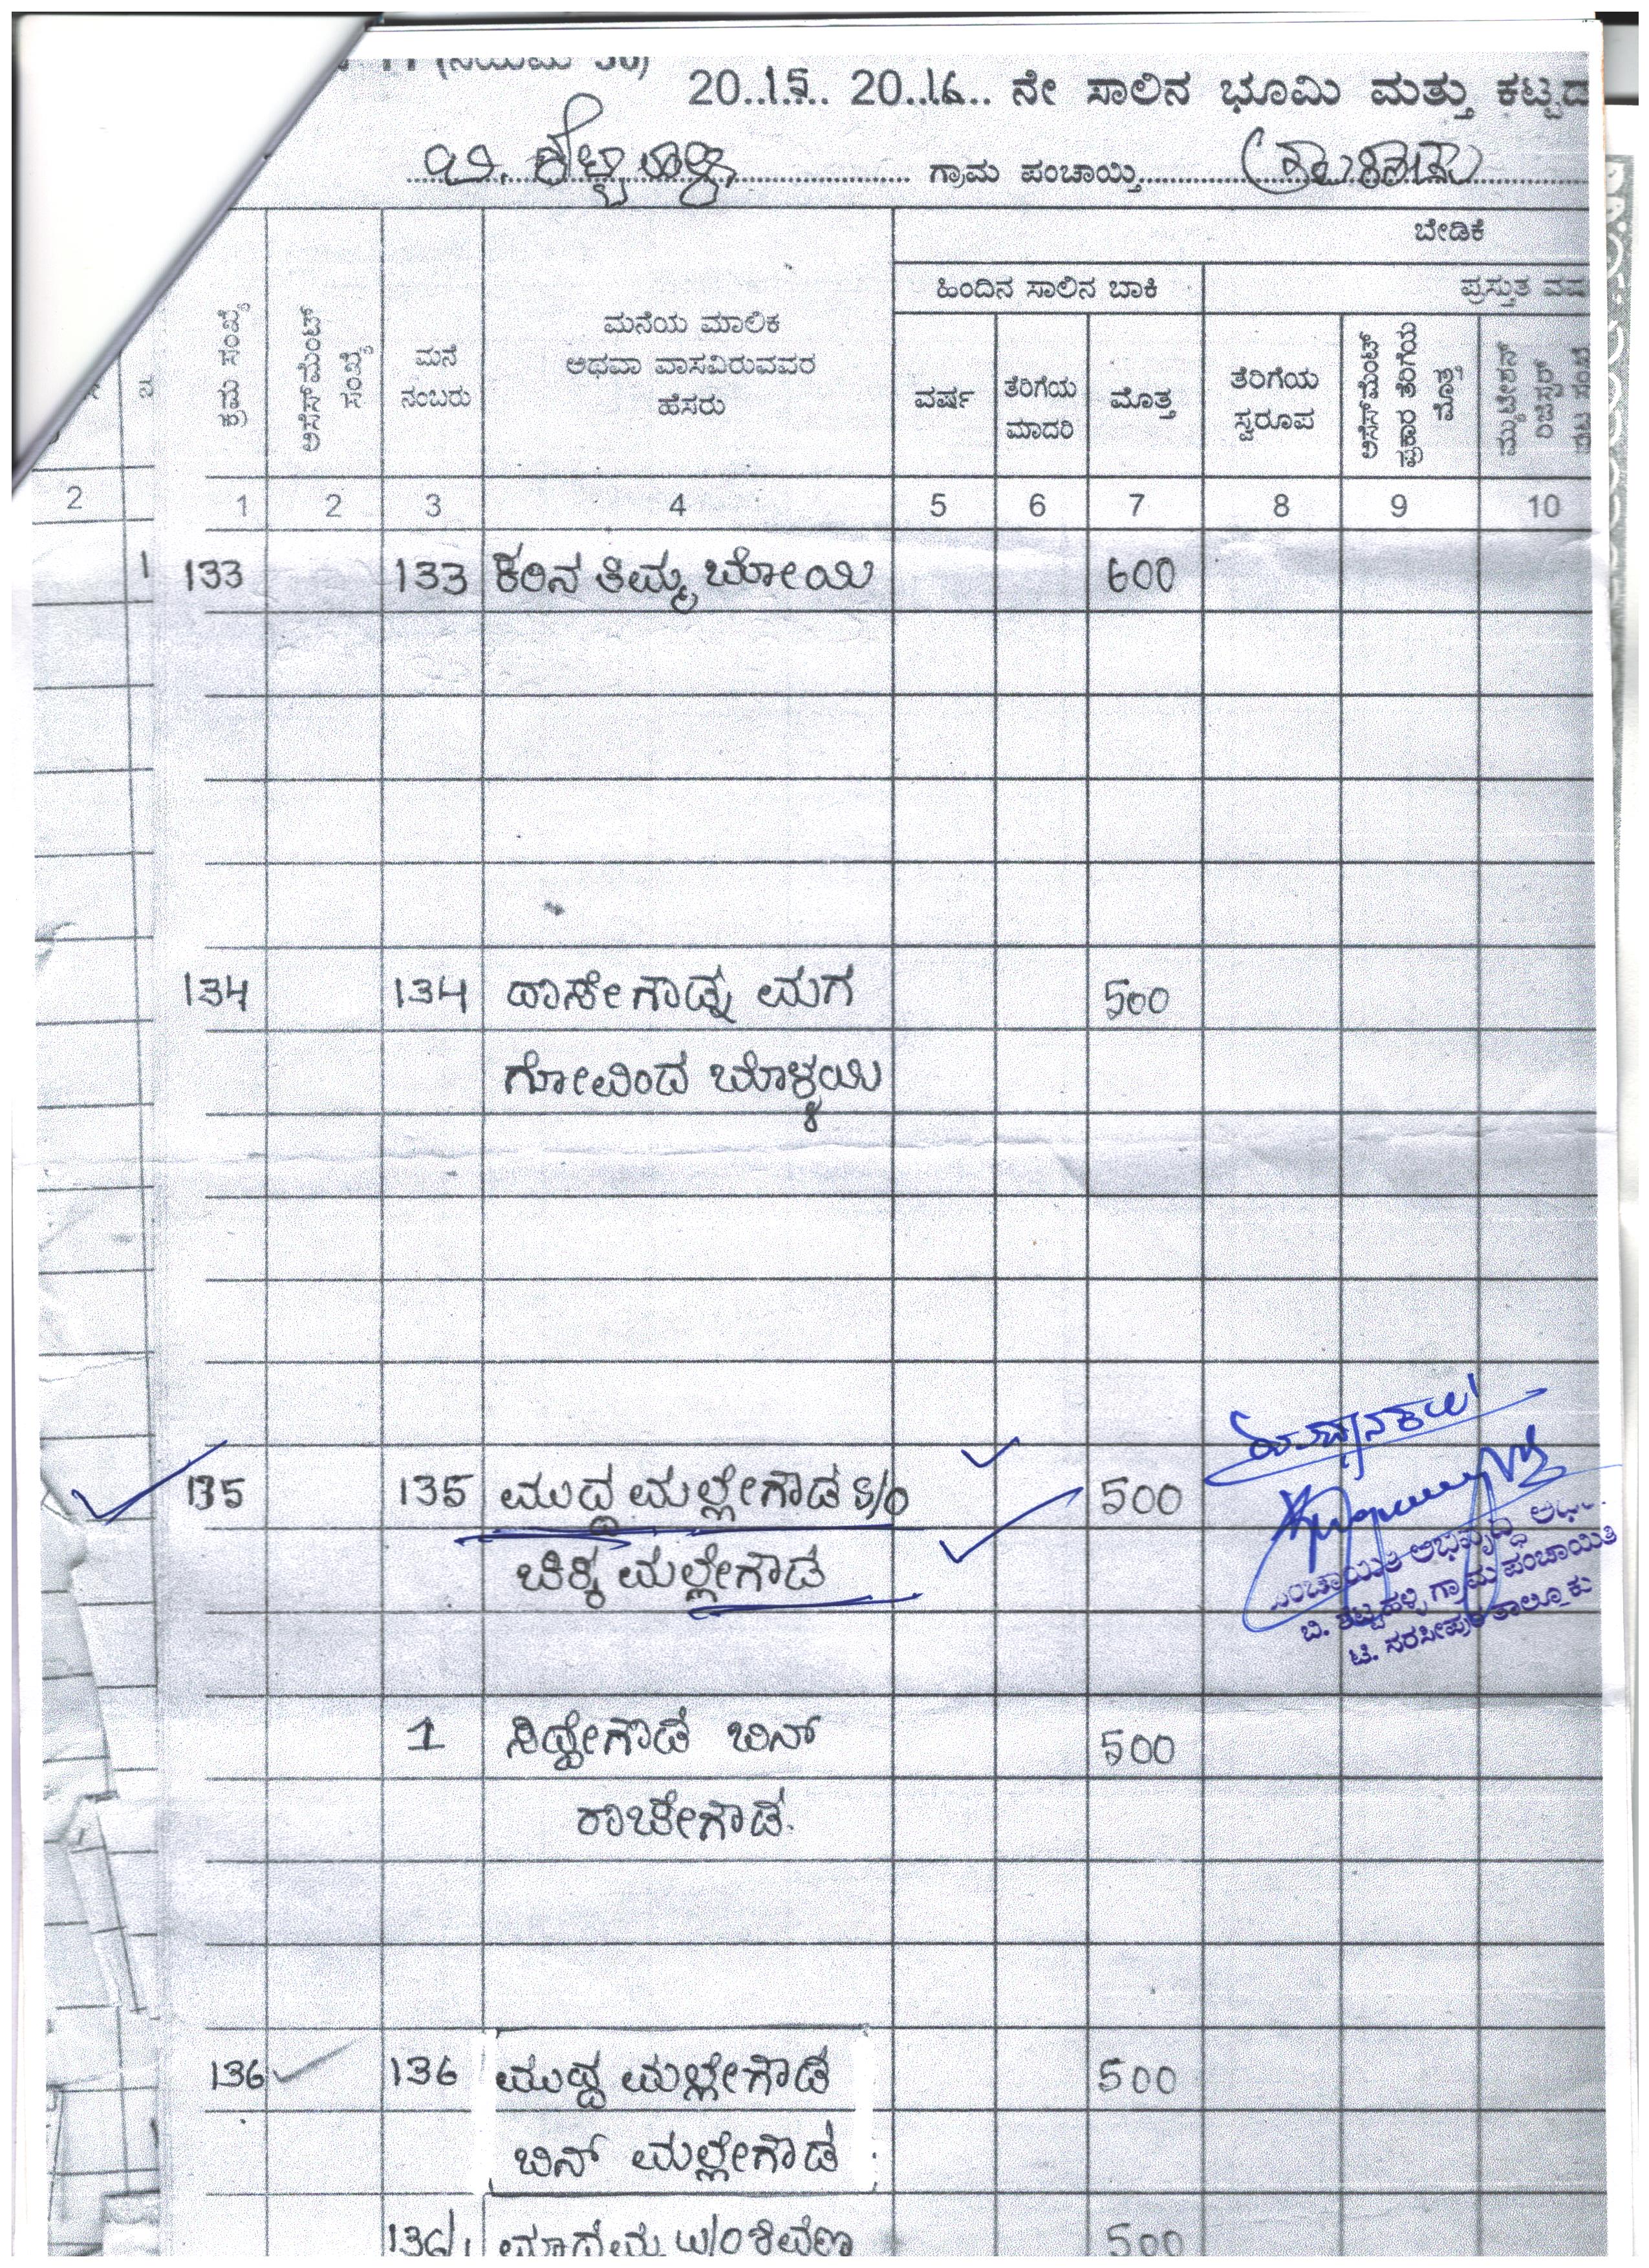 20..15.. 20..16.. ನೇ ಸಾಲಿನ ಭೂಮಿ ಮತ್ತು ಕಟ್ಟದ
ಗ್ರಾಮ ಪಂಚಾಯ್ತಿ
ಬೇಡಿಕೆ
ಹಿಂದಿನ ಸಾಲಿನ ಬಾಕಿ ಪ್ರಸ್ತುತ
ಕ್ರಮ ಸಂಖ್ಯೆ
ಅಸೆಸ್‌ಮೆಂಟ್ ಸಂಖ್ಯೆ
ಮನೆ ನಂಬರು
ಮನೆಯ ಮಾಲಿಕ
ಅಥವಾ ವಾಸವಿರುವವರ
ಹೆಸರು
ವರ್ಷ
ತೆರಿಗೆಯ ಮಾದರಿ
ಮೊತ್ತ
ತೆರಿಗೆಯ ಸ್ವರೂಪ
ಅಸೆಸ್‌ಮೆಂಟ್ ಪ್ರಕಾರ ತೆರಿಗೆಯ ಮೊತ್ತ
ಮ್ಯುಟೇಶನ್ ರಿಜಿಸ್ಟರ್
2 1 2 3 4 5 6 7 8 9 10
1 133 133 ಕರಿನ ತಿಮ್ಮ ಬೋಯಿ 600
134 134 ದಾಸೇಗೌಡ್ನ ಮಗ 500
ಗೋವಿಂದ
135 135 ಮುದ್ದ ಮಲ್ಲೇಗೌಡ S/O 500
ಚಿಕ್ಕ ಮಲ್ಲೇಗೌಡ
ಪಂಚಾಯಿತಿ ಅಭಿವೃದ್ಧಿ
ಬಿ. ಶೆಟ್ಟಹಳ್ಳಿ ಗ್ರಾಮ ಪಂಚಾಯಿತಿ
ಟಿ. ನರಸೀಪುರ ತಾಲ್ಲೂಕು
1 ಸಿದ್ದೇಗೌಡ ಬಿನ್ 500
ರಾಚೇಗೌಡ.
136 136 ಮುದ್ದ ಮಲ್ಲೇಗೌಡ 500
ಬಿನ್ ಮಲ್ಲೇಗೌಡ
136/1 ಮಾದೇಮ್ಮ W/O ಶಿವಣ್ಣ 500